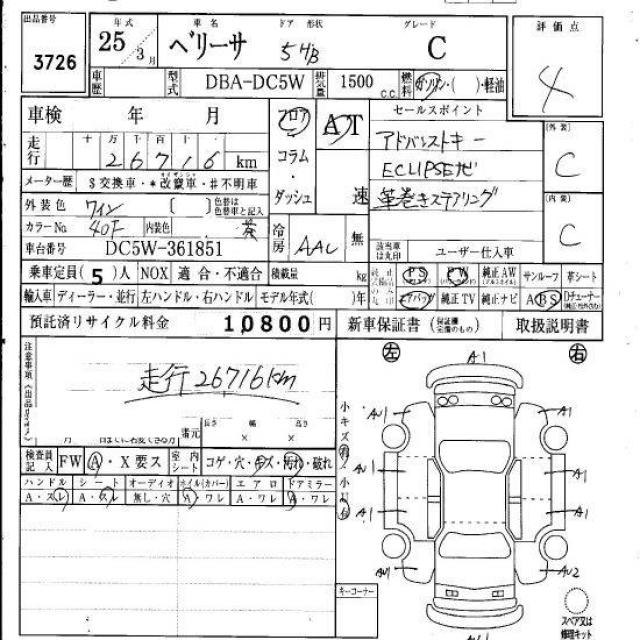 出品番号 年式 車名 ドア 形状 グレード 評価点
3726 25/3月 ベリーサ 5HB C 4
車歴 型式 DBA-DC5W 排気量 1500 c.c. 燃料 ガソリン・( )・軽油
車検 年 月 フロア AT セールスポイント
走行 十 万 千 百 十 一 [外装]
26716 km コラム・ アドバンストキー C
メーター歴 $交換車・*改竄車・#不明車 ECLIPSEナビ
外装色 ワイン [ ] 色替は色替車と記入 ダッシュ 速 革巻きステアリング [内装]
カラーNo 40F 内装色 茶 冷房 AAC 無 C
車台番号 DC5W-361851 該当車は丸印 ユーザー仕入車
乗車定員(5)人 NOX 適合・不適合 積載量 kg PS PW 純正AW サンルーフ 革シート
輸入車 ディーラー・並行 左ハンドル・右ハンドル モデル年式( )年 エアバッグ 純正TV 純正ナビ ABS Dチューナー
預託済リサイクル料金 10800円 新車保証書 (保証欄完備のもの) 取扱説明書
注意事項 左 A1 右
走行26716km
小キズ
AU1 A1
長さ 幅 高さ
月 還元 × ×
検査員記入 FW A・X要ス 室内シート コゲ・穴・キズ・汚れ・破れ
A1 A1
ハンドル シート オーディオ ホイル(カバー) エアロ ドアミラー
A・スレ A・スレ 無し・穴 A・ワレ A・ワレ A・ワレ
A1 A1
AU1 AU2
キーコーナー
スペア又は
修理キット
AU1